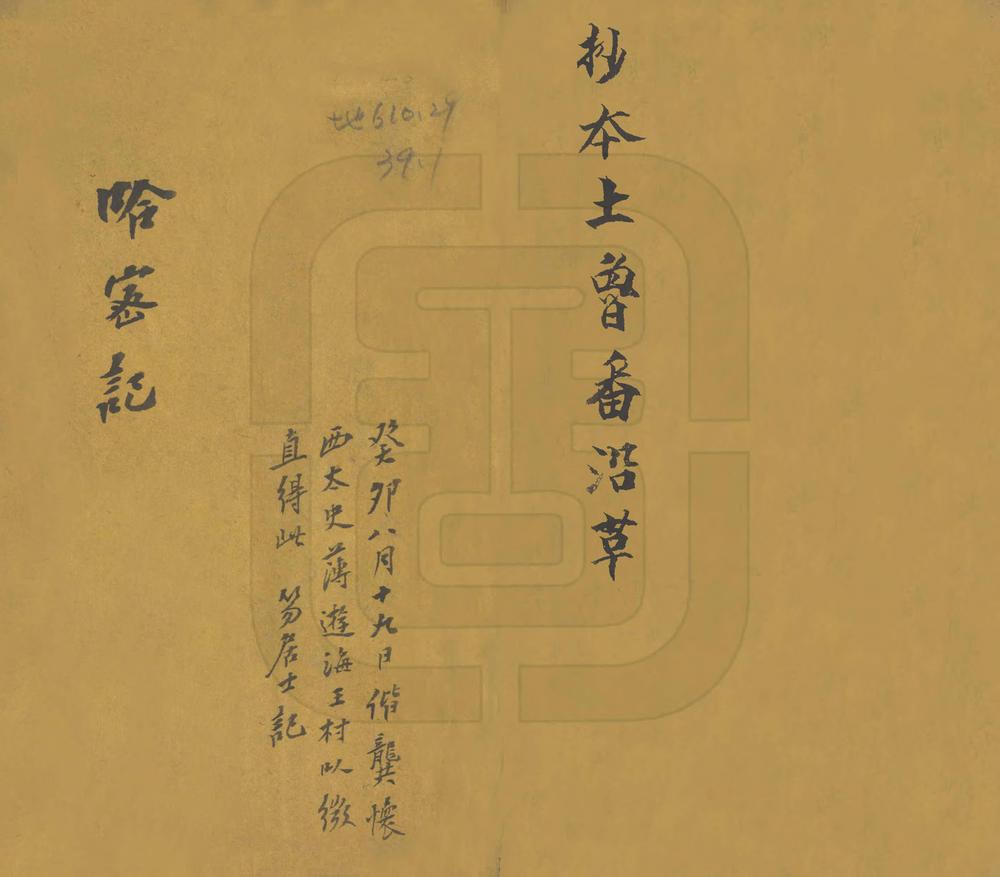 抄本土魯番沿革
地610.29
39.1
癸卯八月十九日偕龔懷
西太史薄遊海王村以微
直得此 笏居士記
哈密記